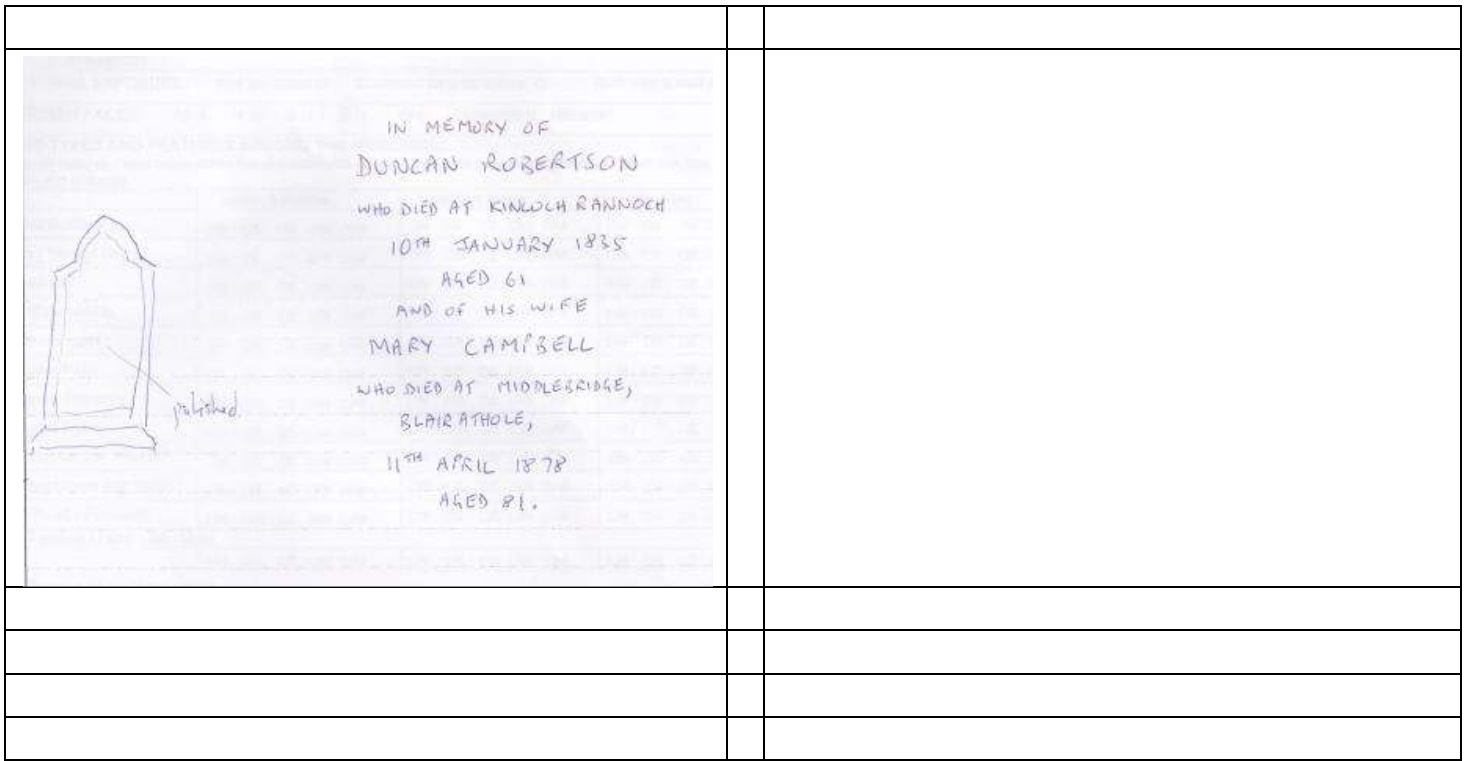 IN MEMORY OF
DUNCAN ROBERTSON
WHO DIED AT KINLOCH RANNOCH
10TH JANUARY 1835
AGED 61
AND OF HIS WIFE
MARY CAMPBELL
WHO DIED AT MIDDLEBRIDGE,
BLAIR ATHOLE,
11TH APRIL 1878
AGED 81.
polished.